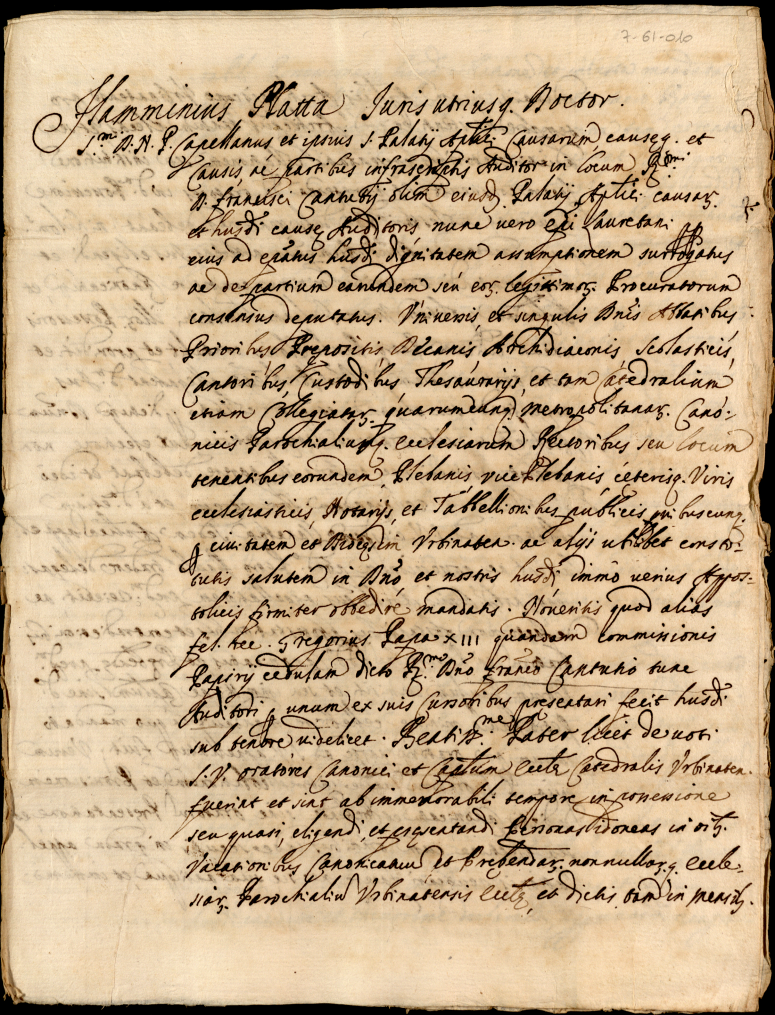 7-61-010
Flamminius Platta Iuris utriusq. Doctor.
S.mi D. N. P. Capellanus et ipsius S. Palatij Aplici Causarum, causeq. et
Causis, ac partibus infrascriptis Auditor in locum R.mi
D. Francisci Cantutij olim eiusd. Palatij Aplici causar.
et husdi. cause Auditoris nunc vero Epi Lauretani
eius ad epatus husdi. dignitatem assumptionem surrogatus
ac de partium earundem seu eor. legitimor. Procuratorum
consensus deputatus. Universis et singulis Dnis Abbatibus
Prioribus Prepositis Decanis Archidiaconis, Scolasticis,
Cantoribus, Custodibus Thesaurarijs, et tam Catedralium
etiam Collegiatar. quarumcunq. metropolitanar. Cano-
nicis Parochialiumq. ecclesiarum Rectoribus seu locum
tenentibus eorundem, Plebanis vicePlebanis ceterisq. Viris
ecclesiasticis, Notarijs, et Tabbellionibus publicis quibuscunq.
p civitatem et Diocesim Urbinaten. ac alijs ubilibet consti-
tutis salutem in Dno et nostris husdi. immo verius Appos-
tolicis firmiter obbedire mandatis. Noveritis quod alias
fel. rec. Gregorius Papa XIII quandam commissionis
Papirij cedulam dicto R.mo Dno Franco Cantutio tunc
Auditori p unum ex suis Cursoribus presentari fecit husdi.
sub tenore videlicet. Beatiss.me Pater licet devoti
S. V. oratores Canonici et Caplum eccle Catedralis Urbinaten.
fuerint et sint ab immemorabili tempore in possessione
seu quasi, eligendi, et presentandi personas idoneas in
Vacationibus Canonicatuu et Prebendar. nonnullar.q. eccle-
siar. Parochialiu Urbinatensis eccle, et dictis tam in mensib.